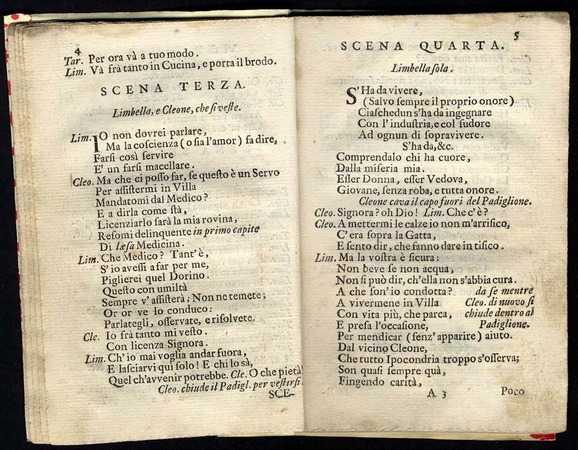 4
Tar. Per ora và a tuo modo.
Lim. Và frà tanto in Cucina, e porta il brodo.
SCENA TERZA.
Limbella, e Cleone, che si veste.
Lim. IO non dovrei parlare,
Ma la coscienza (o sia l'amor) fa dire,
Farsi così servire
E' un farsi macellare.
Cleo. Ma che ci posso far, se questo è un Servo
Per assistermi in Villa
Mandatomi dal Medico?
E a dirla come stà,
Licenziarlo sarà la mia rovina,
Resomi delinquente in primo capite
Di læsa Medicina.
Lim. Che Medico? Tant'è,
S'io avessi a far per me,
Piglierei quel Dorino.
Questo con umiltà
Sempre v'assisterà: Non ne temete;
Or or ve lo conduco:
Parlategli, osservate, e risolvete.
Cle. Io frà tanto mi vesto.
Con licenza Signora.
Lim. Ch'io mai voglia andar fuora,
E lasciarvi qui solo! E chi lo sà,
Quel ch'avvenir potrebbe. Cle. O che pietà
Cleo. chiude il Padigl. per vestirsi.
SCE-
5
SCENA QUARTA.
Limbella sola.
S'Ha da vivere,
(Salvo sempre il proprio onore)
Ciaschedun s'ha da ingegnare
Con l'industria, e col sudore
Ad ognun di sopravivere.
S'ha da, &c.
Comprendalo chi ha cuore,
Dalla miseria mia.
Esser Donna, esser Vedova,
Giovane, senza roba, e tutta onore.
Cleone cava il capo fuori del Padiglione.
Cleo. Signora? oh Dio! Lim. Che c'è?
Cleo. A mettermi le calze io non m'arrisico,
C'era sopra la Gatta,
E sento dir, che fanno dare in tisico.
Lim. Ma la vostra è sicura:
Non beve se non acqua,
Non si può dir, ch'ella non s'abbia cura.
A che son' io condotta? da se mentre
A vivermene in Villa Cleo. di nuovo si
Con vita più, che parca, chiude dentro al
E presa l'occasione, Padiglione.
Per mendicar (senz' apparire) aiuto.
Dal vicino Cleone,
Che tutto Ipocondria troppo s'osserva;
Son quasi sempre quà,
Fingendo carità,
A 3 Poco